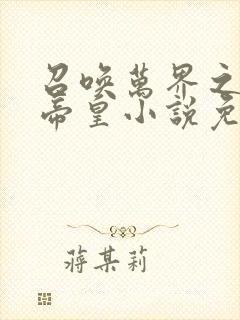 召唤萬界之
帝皇小說免
蔣某莉